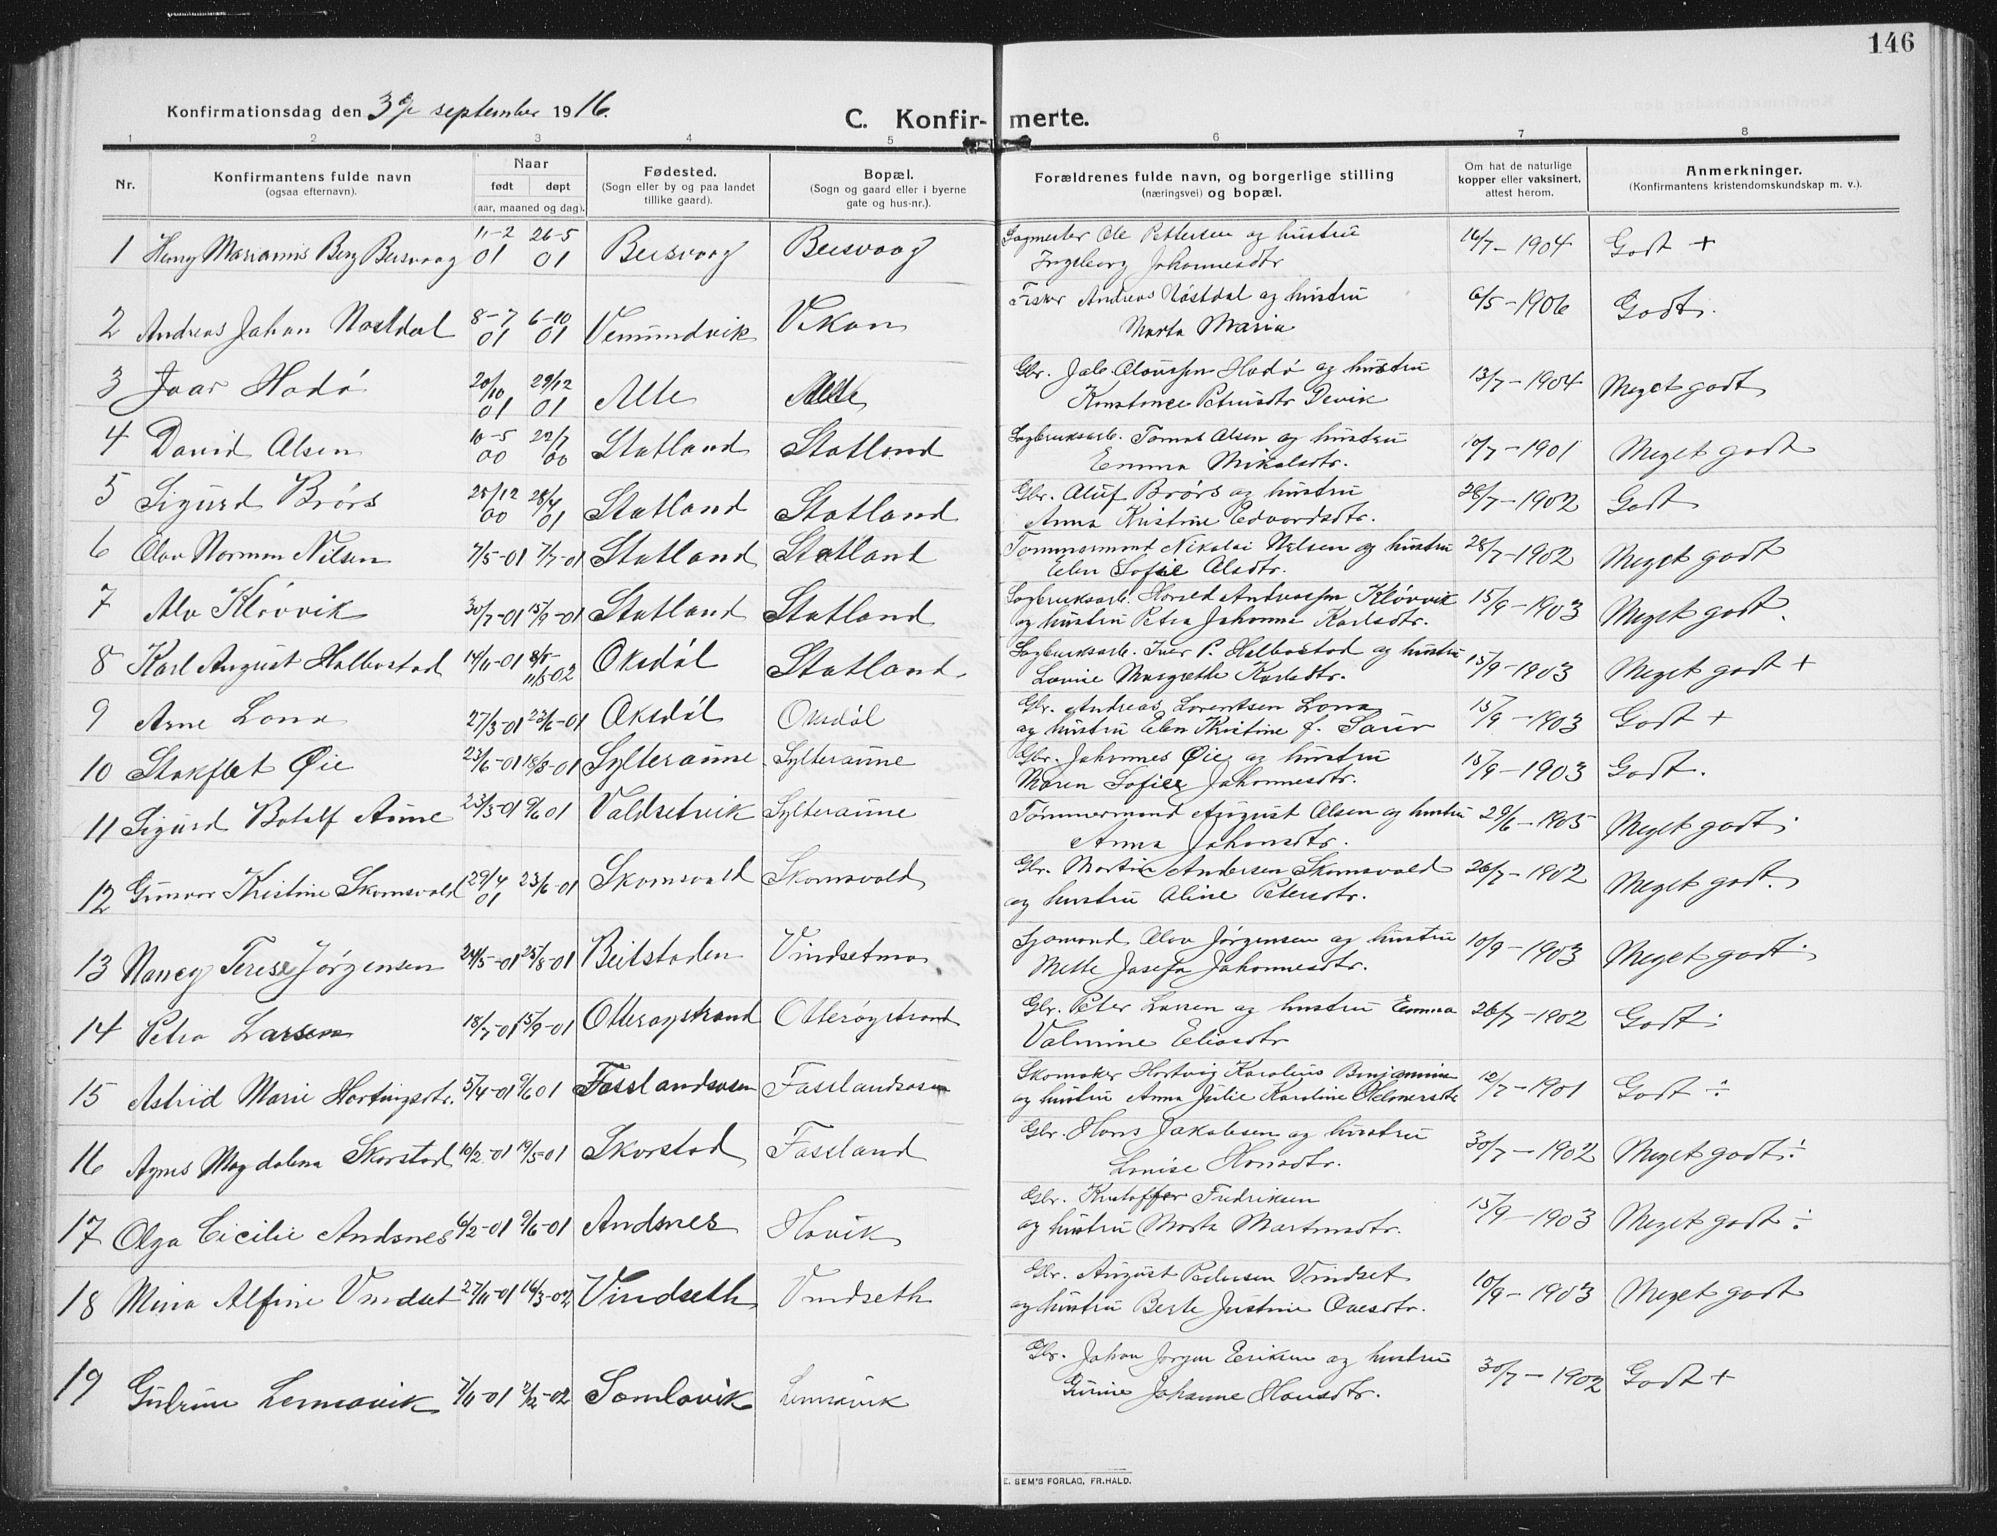 146
Konfirmationsdag den 3dje september 1916.
C. Konfirmerte.
1 2 3 4 5 6 7 8
Nr.
Konfirmantens fulde navn
(ogsaa efternavn).
Naar
født døpt
(aar, maaned og dag).
Fødested.
(Sogn eller by og paa landet
tillike gaard).
Bopæl.
(Sogn og gaard eller i byerne
gate og hus-nr.).
Forældrenes fulde navn, og borgerlige stilling
(næringsvei) og bopæl.
Om hat de naturlige
kopper eller vaksinert,
attest herom.
Anmerkninger.
(Konfirmantens kristendomskundskap m. v.).
1 Henny Marianus Berg Beisvaag 11-2 01 26-5 01 Beisvaag Beisvaag Sagmester Ole Pettersen og hustru
Ingeborg Johannesdtr 16/7-1904 Godt +
2 Andreas Johan Nøstdal 8-7 01 6-10 01 Vemundvik Vikan Fisker Andreas Nøstdal og hustru
Marta Maria 6/5-1906 Godt.
3 Joar Hodø 20/10 01 29/12 01 Alte Alte Gbr. Jak. Olaussen Hodø og hustru
Konstance Petrusdtr Devik 13/7-1904 Meget godt
4 David Olsen 10-5 00 22/7 00 Statland Statland Sagbruksarb. Tomas Olsen og hustru
Emma Mikalsdtr. 10/7-1901 Meget godt
5 Sigurd Brørs 25/12 00 28/4 01 Statland Statland Gbr. Aluf Brørs og hustru
Anna Kristine Edvardsdtr. 28/7-1902 Godt
6 Olav Normann Nilsen 7/5-01 7/7-01 Statland Statland Tømmermand Nikolai Nilsen og hustru
Elen Sofie Olsdtr. 28/7-1902 Meget godt
7 Alv Kløvvik 30/7-01 15/9-01 Statland Statland Sagbruksarb. Harald Andreassen Kløvvik
og hustru Petra Johanna Karlsdtr. 15/9-1903 Meget godt.
8 Karl August Halbostad 14/11-01 8/5- 11/5-02 Oksdøl Statland Sagbruksarb. Iver P. Halbostad og hustru
Lovine Margrethe Karlsdtr. 15/9-1903 Meget godt +
9 Arne Lona 27/3-01 23/6-01 Oksdøl Oksdøl Gbr. Andreas Lorentsen Lona
og hustru Elen Kristine f. Saur 15/9-1903 Godt +
10 Stakflet Øie 23/6-01 18/8-01 Sylteraune Sylteraune Gbr. Johannes Øie og hustru
Maren Sofie Johannesdtr. 15/9-1903 Godt.
11 Sigurd Botolf Aune 23/3-01 9/6 01 Valdsetvik Sylteraune Tømmermand August Olsen og hustru
Anna Johansdtr. 29/6-1905 Meget godt.
12 Gunvor Kristine Skomsvold 29/4 01 23/6-01 Skomsvold Skomsvold Gbr. Martin Andersen Skomsvold
og hustru Aline Petersdtr. 26/7-1902 Meget godt.
13 Nancy Terese Jørgensen 24/5-01 25/8-01 Beitstaden Vindsetmo Sjømand Olav Jørgensen og hustru
Mette Josefa Johannesdtr. 10/9-1903 Meget godt.
14 Petra Larsen 18/7-01 15/9-01 Otterøystrand Otterøystrand Gbr. Peter Larsen og hustru Emma
Valmine Eliasdtr 26/7-1902 Godt.
15 Astrid Marie Hartvigsdtr. 5/4-01 9/6 01 Fasslandsosen Fasslandsosen Skomaker Hartvig Karolius Benjaminsen
og hustru Anna Julie Karoline Helmersdtr 12/7-1901 Godt ÷
16 Agnes Magdalena Skorstad 10/2-01 19/5-01 Skorstad Fassland Gbr. Hans Jakobsen og hustru
Louise Hansdtr. 30/7-1902 Meget godt ÷
17 Olga Cicilie Andsnes 6/2-01 9/6-01 Andsnes Hovik Gbr. Kristoffer Fredriksen
og hustru Marta Martinusdtr. 15/9-1903 Meget godt ÷
18 Mina Alfine Vindset 27/11-01 16/3-02 Vindseth Vindseth Gbr. August Pedersen Vindset
og hustru Berte Justine Ovesdtr. 10/9-1903 Meget godt
19 Gudrun Lemsovik 7/11-01 2/2-02 Somlovik Lemsovik Gbr. Johan Jørgen Eriksen og hustru
Gurine Johanne Hansdtr. 30/7-1902 Godt +
E. SEM'S FORLAG, FR.HALD.